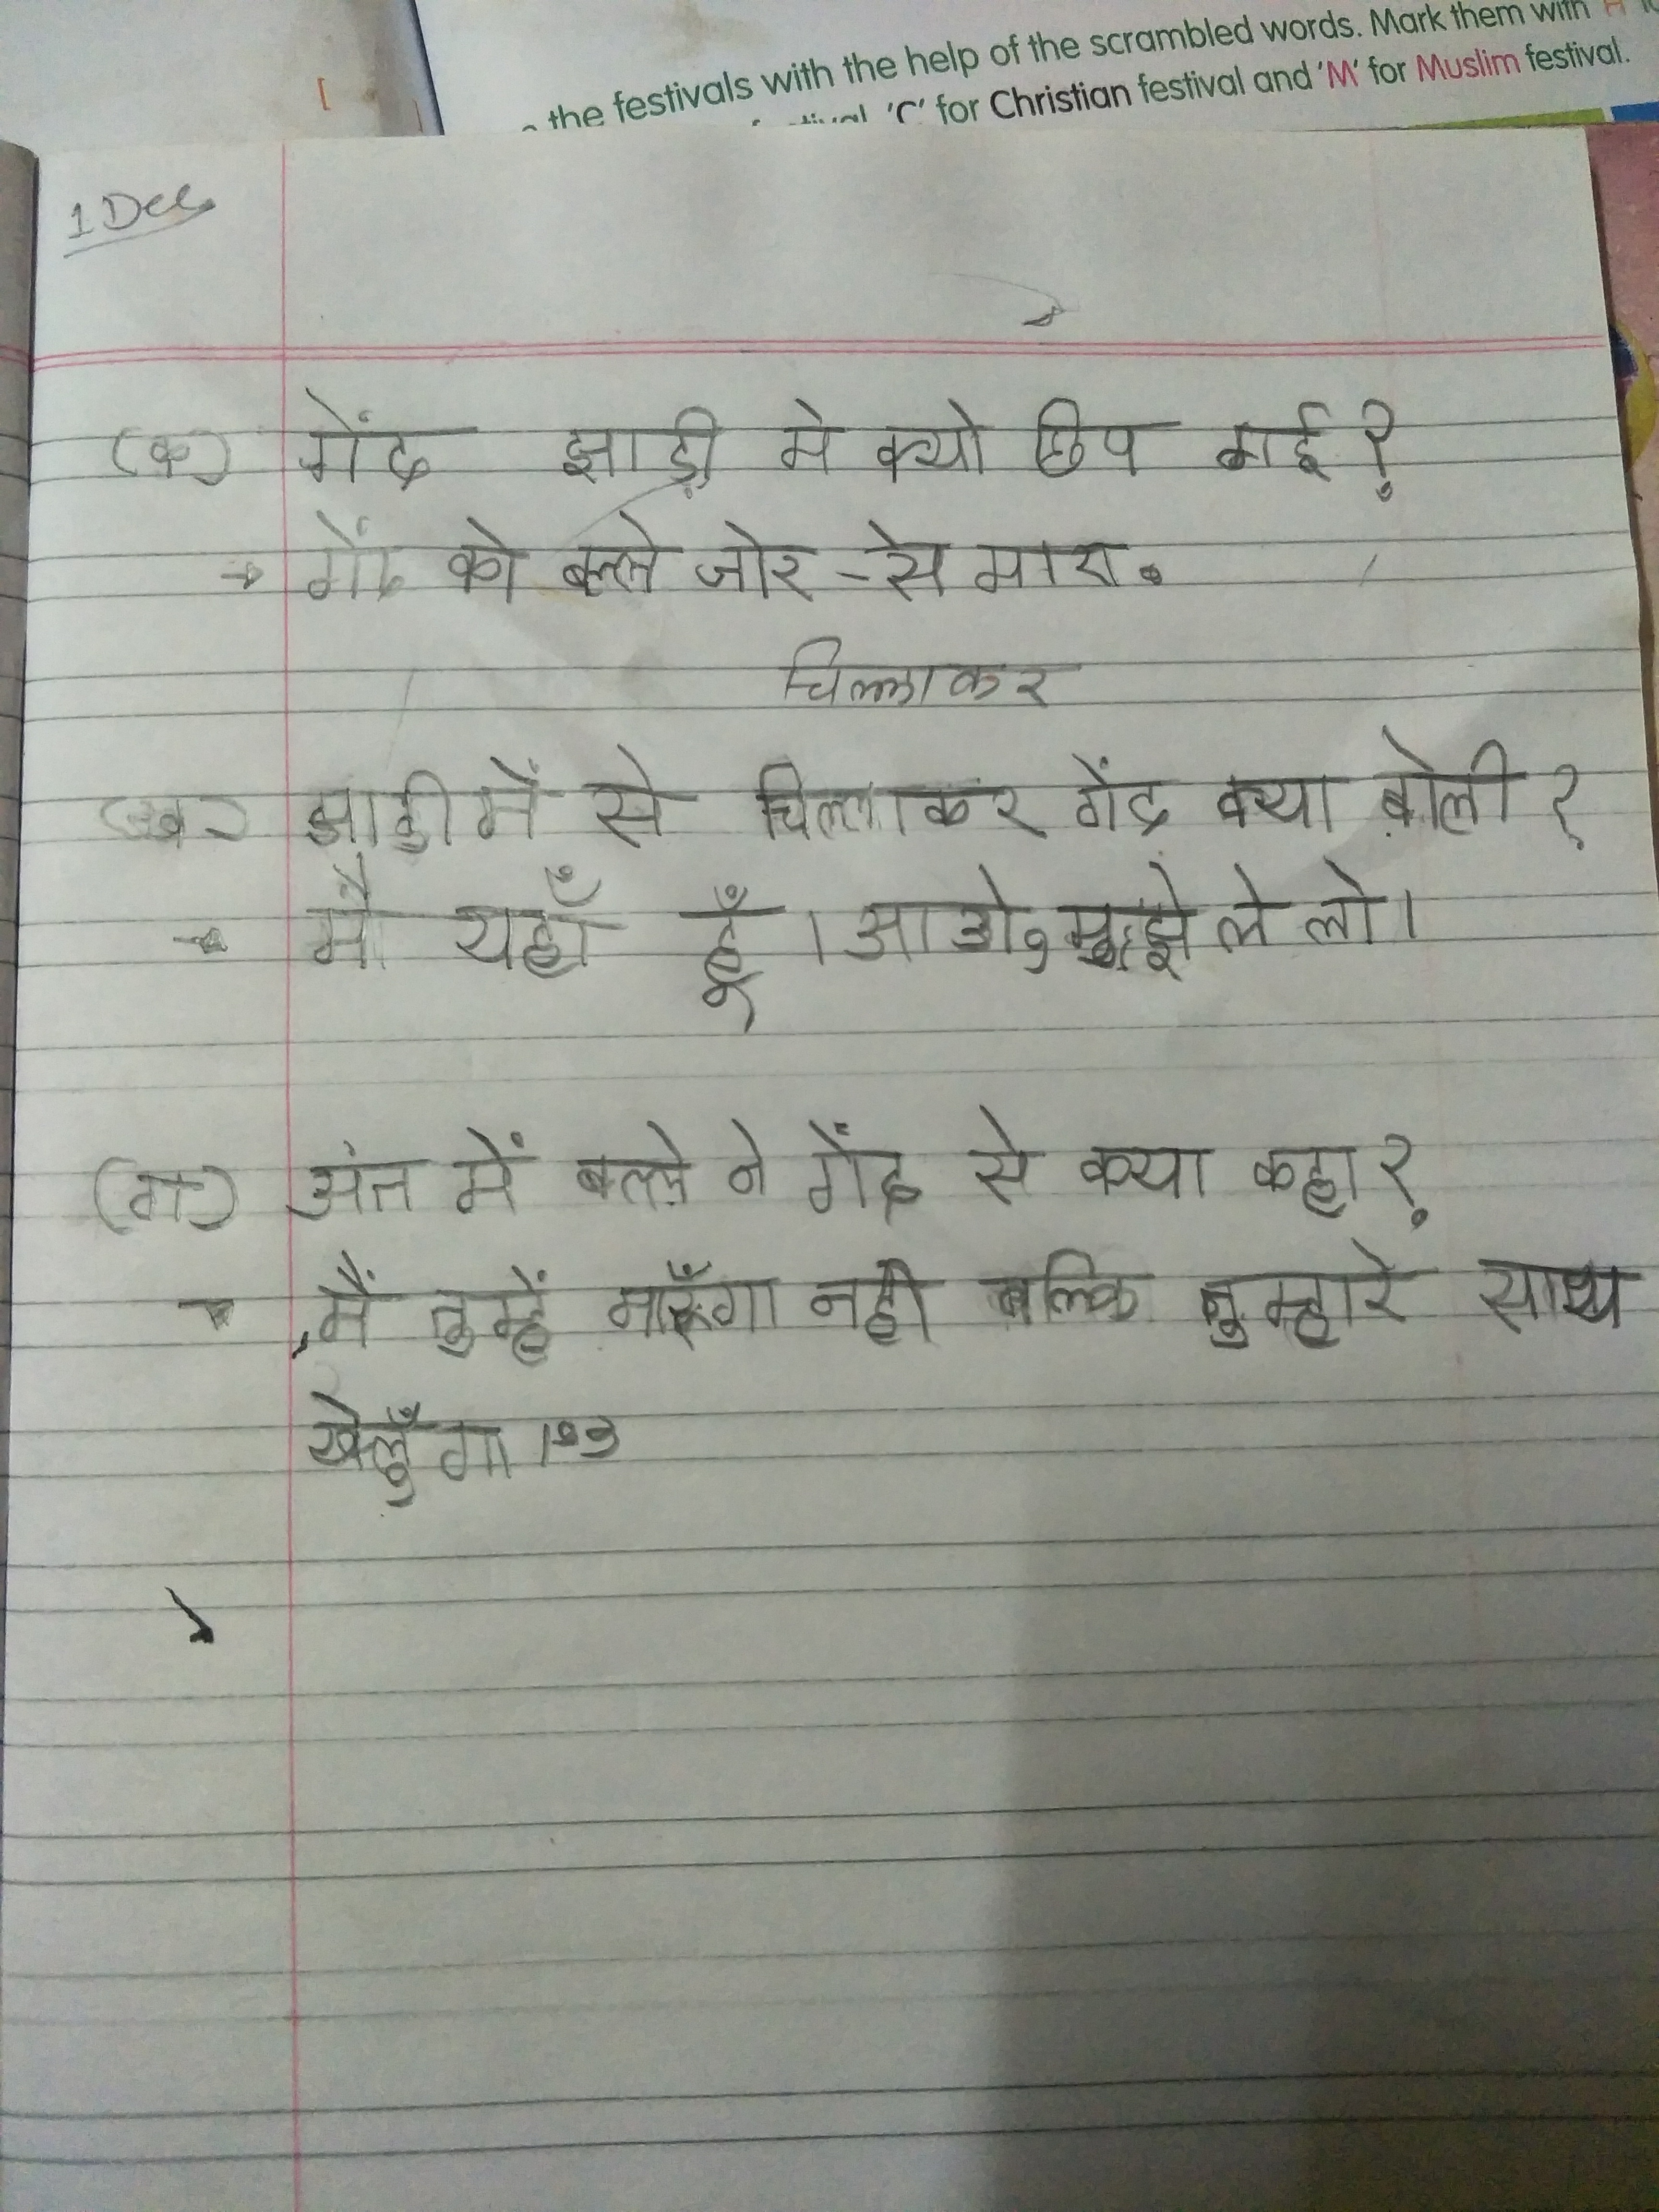 the festivals with the help of the scrambled words. Mark them with
'C' for Christian festival and 'M' for Muslim festival.
1 Dec
(क) गेंद झाड़ी मे क्यो छिप गई?
→ गेंद को बल्ले जोर-से मारा.
चिल्लाकर
(ख) झाड़ी में से चिल्लाकर गेंद क्या बोली?
→ मैं यहाँ हूँ। आओ, मुझे ले लो।
(ग) अंत में बल्ले ने गेंद से क्या कहा?
→ मैं तुम्हें मारूँगा नही बल्कि तुम्हारे साथ
खेलूँगा।